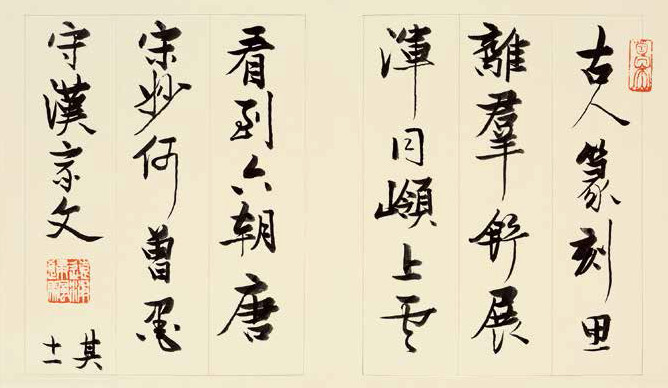 古人篆刻思
離羣舒展
渾同嶺上雲
看到六朝唐
宋妙何曾墨
守漢家文
其
十一